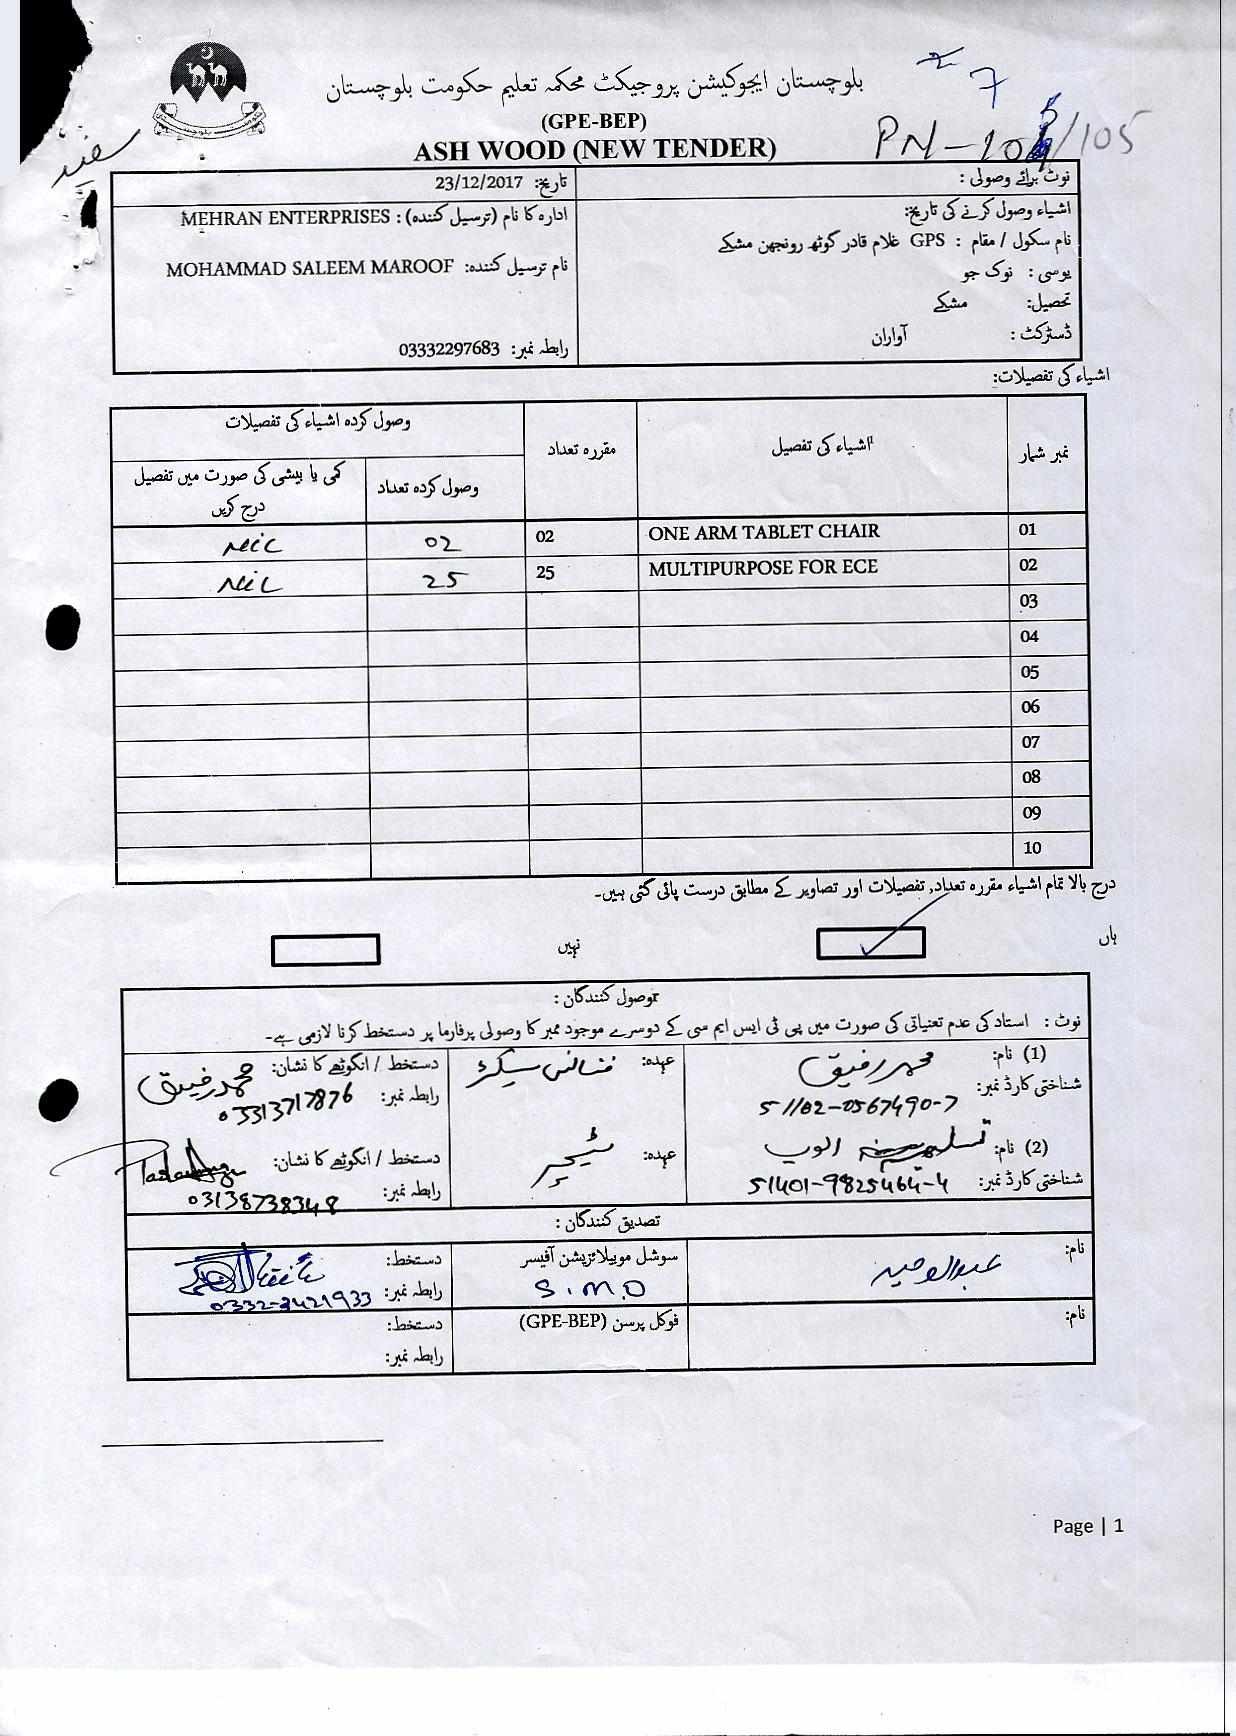 بلوچستان ایجوکیشن پروجیکٹ محکمہ تعلیم حکومت بلوچستان
7
(GPE-BEP)
ASH WOOD (NEW TENDER)
PN-10 /105
نوٹ برائے وصولی :
تاریخ: 23/12/2017
اشیاء وصول کرنے کی تاریخ:
ادارہ کا نام (ترسیل کنندہ) : MEHRAN ENTERPRISES
نام سکول / مقام : GPS غلام قادر گوٹھ رونجھن مشکے
نام ترسیل کنندہ: MOHAMMAD SALEEM MAROOF
یوسی : نوک جو
تحصیل: مشکے
ڈسٹرکٹ : آواران
رابطہ نمبر: 03332297683
اشیاء کی تفصیلات:
نمبر شمار اشیاء کی تفصیل مقررہ تعداد وصول کردہ اشیاء کی تفصیلات
وصول کردہ تعداد کمی یا بیشی کی صورت میں تفصیل درج کریں
01 ONE ARM TABLET CHAIR 02 02 NIL
02 MULTIPURPOSE FOR ECE 25 25 NIL
03
04
05
06
07
08
09
10
درج بالا تمام اشیاء مقررہ تعداد, تفصیلات اور تصاویر کے مطابق درست پائی گئی ہیں۔
ہاں نہیں
وصول کنندگان :
نوٹ : استاد کی عدم تعنیاتی کی صورت میں پی ٹی ایس ایم سی کے دوسرے موجود ممبر کا وصولی پرفارما پر دستخط کرنا لازمی ہے۔
(1) نام: محمد رفیق عہدہ: دستخط / انگوٹھے کا نشان: محمد رفیق
شناختی کارڈ نمبر: 51102-0567490-7 رابطہ نمبر: 03313717876
(2) نام: عہدہ: ٹیچر دستخط / انگوٹھے کا نشان:
شناختی کارڈ نمبر: 51401-9825464-4 رابطہ نمبر: 03138738348
تصدیق کنندگان :
نام: عبدالوحید سوشل موبیلائزیشن آفیسر دستخط:
S.M.O رابطہ نمبر: 0332-2421933
نام: فوکل پرسن (GPE-BEP) دستخط:
رابطہ نمبر:
Page | 1